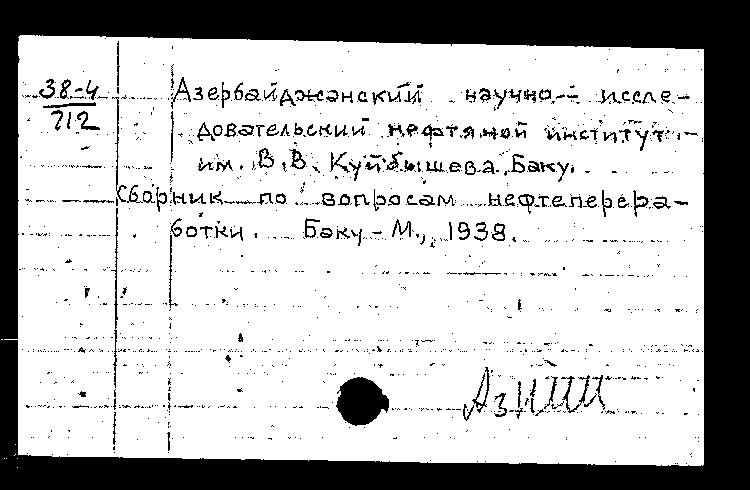 38-4
712
Азербайджанский научно-иссле-
довательский нефтяной институт
им. В.В. Куйбышева, Баку.
Сборник по вопросам нефтеперера-
ботки. Баку - М., 1938.